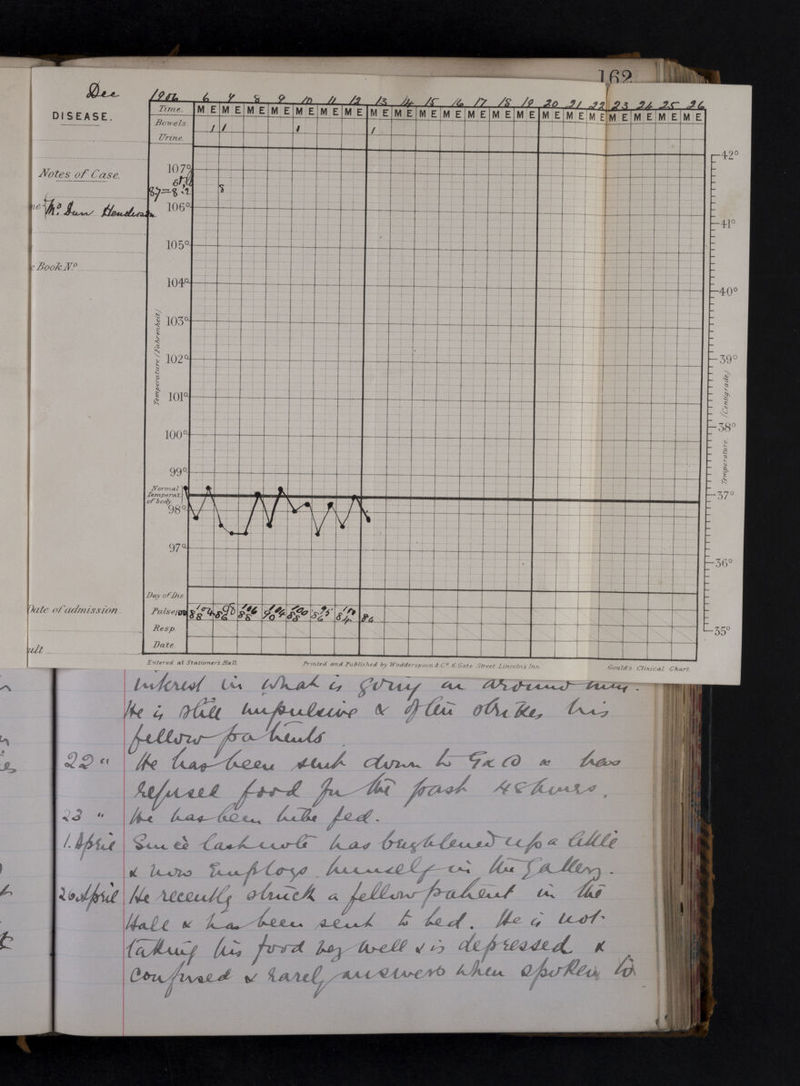 162
Dec 1906 6 7 8 9 10 11 12 13 14 15 16 17 18 19 20 21 22 23 24 25 26
DISEASE.
Time. M E M E M E M E M E M E M E M E M E M E M E M E M E M E M E M E M E M E M E M E M E
Bowels 1 1 1 1
Urine.
Notes of Case.
Henderson
Book No
107°
106°
105°
104°
103°
102°
101°
100°
99°
98°
97°
Temperature (Fahrenheit)
Normal Temperat. of body
42°
41°
40°
39°
38°
37°
36°
35°
Temperature. (Centigrade)
Day of Dis
Date of admission
Pulse
Resp
Date
ult
Entered at Stationers Hall.
Printed and Published by Wodderspoon & Co. 6. Gate Street Lincoln's Inn.
Gould's Clinical Chart.
interest in what is going on around him.
He is still impulsive & often strikes his
fellow patients
22 " He has been sent down to as has
refused food for the past 48 hours.
23 " He has been tube fed.
1. April Since last note has brightened up a little
& now employs himself in the Gallery.
20 April He recently struck a fellow patient in the
Hall & has been sent to bed. He is not
taking his food very well & is depressed &
confused & rarely answers when spoken to